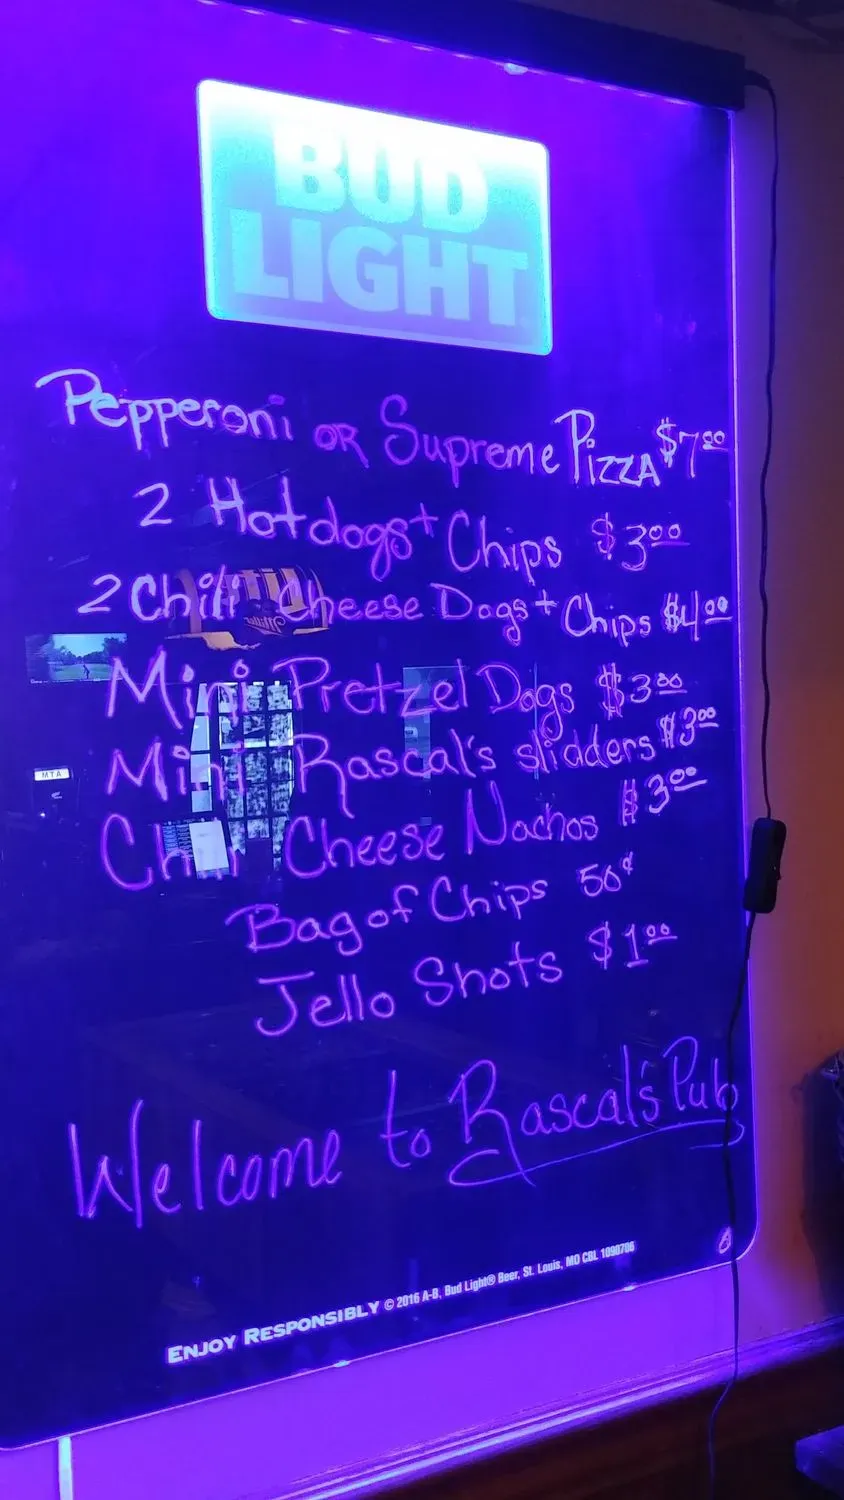 BUD
LIGHT
Pepperoni OR Supreme PIZZA $7.00
2 Hotdogs + Chips $3.00
2 Chili Cheese Dogs + Chips $4.00
Miller
Mini Pretzel Dogs $3.00
Mini Rascal's slidders $3.00
MTA
Chili Cheese Nachos $3.00
Bag of Chips 50¢
Jello Shots $1.00
Welcome to Rascal's Pub
ENJOY RESPONSIBLY © 2016 A-B, Bud Light® Beer, St. Louis, MO CBL 1090706